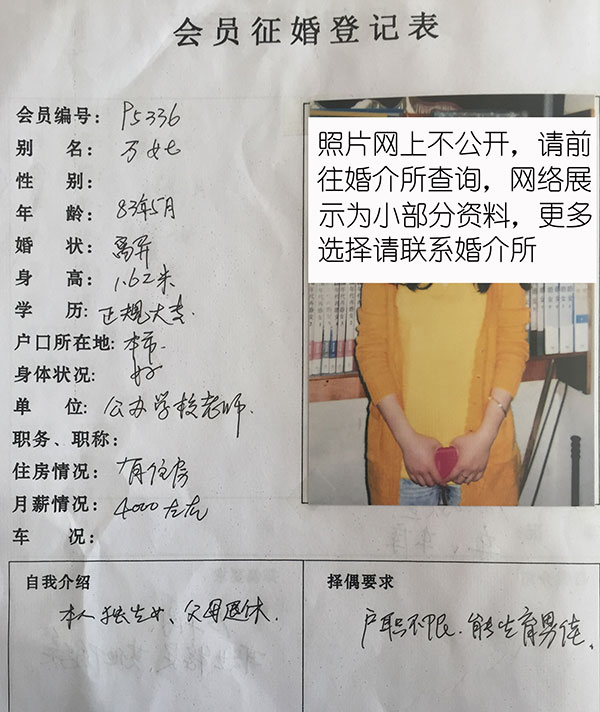 会员征婚登记表
会员编号: P5336
别 名: 万女士
性 别:
年 龄: 83年5月
婚 状: 离异
身 高: 1.62米
学 历: 正规大专.
户口所在地: 本市.
身体状况: 好
单 位: 公办学校老师.
职务、职称:
住房情况: 有住房
月薪情况: 4000左右
车 况:
照片网上不公开，请前
往婚介所查询，网络展
示为小部分资料，更多
选择请联系婚介所
自我介绍
本人独生女、父母退休.
择偶要求
户职不限.能生育男佳.